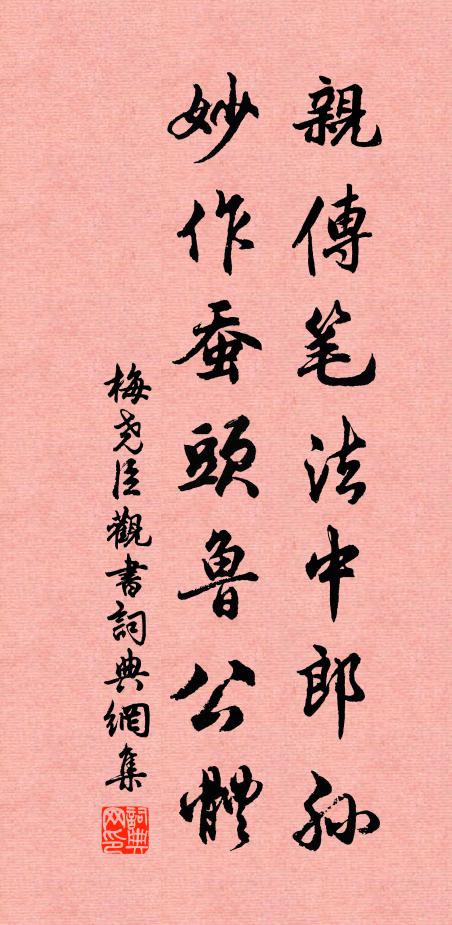 親傳笔法中郎孙
妙作蚕頭魯公體
梅尧臣觀書詞典網集
詞典网印